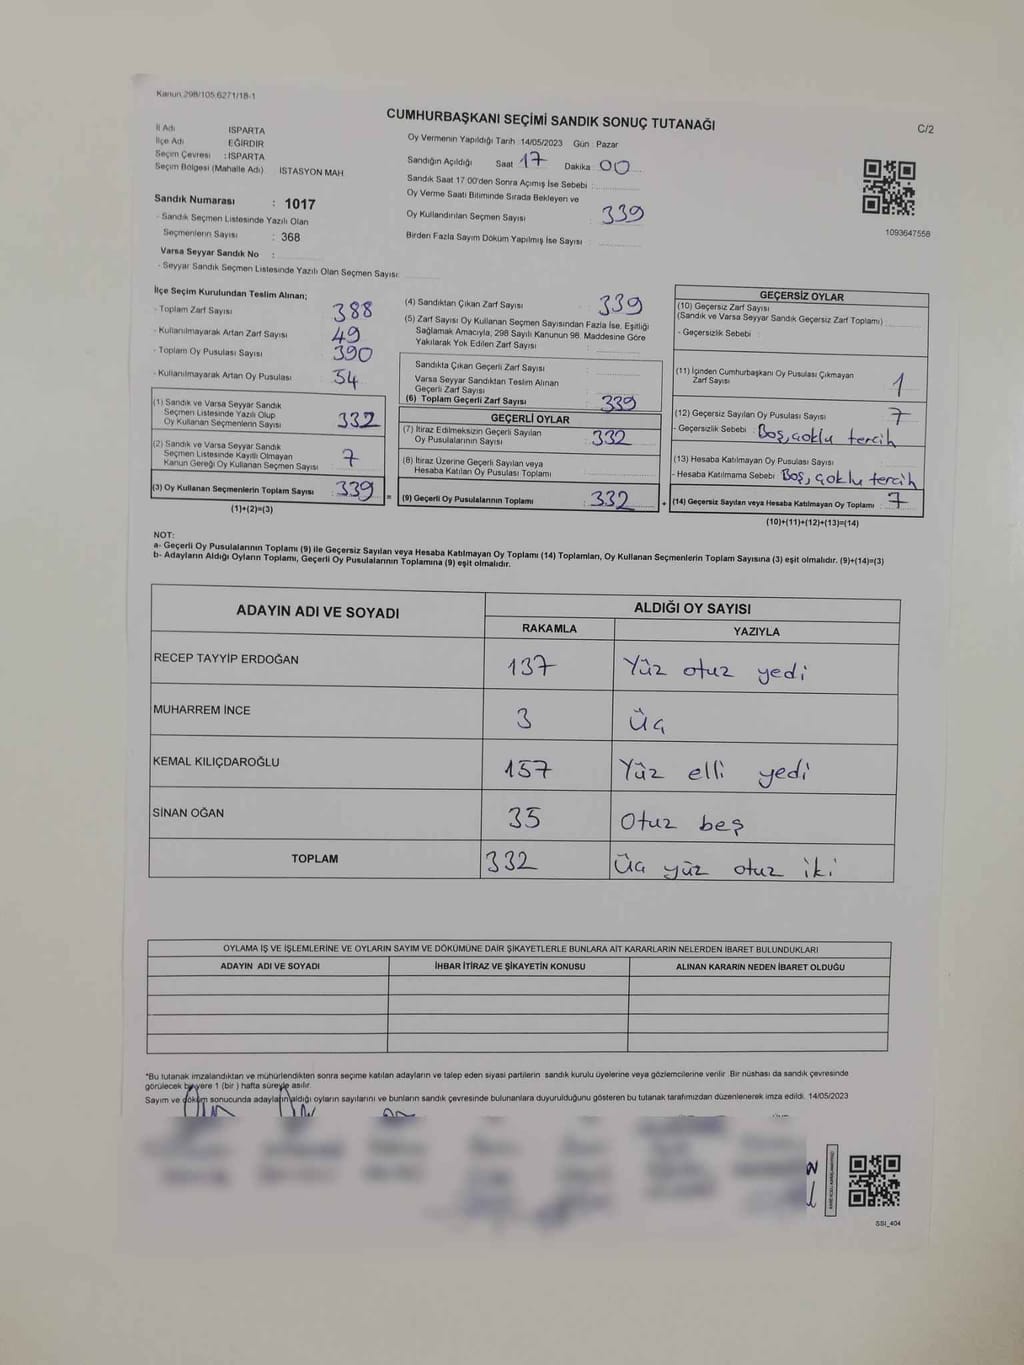 Kanun 298/105 6271/18-1
CUMHURBAŞKANI SEÇİMİ SANDIK SONUÇ TUTANAĞI
C/2
İl Adı ISPARTA
İlçe Adı EĞİRDİR
Seçim Çevresi : ISPARTA
Seçim Bölgesi (Mahalle Adı) İSTASYON MAH.
Sandık Numarası : 1017
- Sandık Seçmen Listesinde Yazılı Olan
Seçmenlerin Sayısı : 368
Varsa Seyyar Sandık No :
- Seyyar Sandık Seçmen Listesinde Yazılı Olan Seçmen Sayısı:
Oy Vermenin Yapıldığı Tarih 14/05/2023 Gün : Pazar
Sandığın Açıldığı Saat 17 Dakika 00
Sandık Saat 17:00'den Sonra Açımış İse Sebebi :
Oy Verme Saati Bitiminde Sırada Bekleyen ve
Oy Kullandırılan Seçmen Sayısı 339
Birden Fazla Sayım Döküm Yapılmış İse Sayısı
1093647558
İlçe Seçim Kurulundan Teslim Alınan;
- Toplam Zarf Sayısı 388
- Kullanılmayarak Artan Zarf Sayısı 49
- Toplam Oy Pusulası Sayısı 390
- Kullanılmayarak Artan Oy Pusulası 54
(1) Sandık ve Varsa Seyyar Sandık
Seçmen Listesinde Yazılı Olup
Oy Kullanan Seçmenlerin Sayısı 332
(2) Sandık ve Varsa Seyyar Sandık
Seçmen Listesinde Kayıtlı Olmayan
Kanun Gereği Oy Kullanan Seçmen Sayısı 7
(3) Oy Kullanan Seçmenlerin Toplam Sayısı 339 =
(1)+(2)=(3)
(4) Sandıktan Çıkan Zarf Sayısı 339
(5) Zarf Sayısı Oy Kullanan Seçmen Sayısından Fazla İse, Eşitliği
Sağlamak Amacıyla, 298 Sayılı Kanunun 98. Maddesine Göre
Yakılarak Yok Edilen Zarf Sayısı
Sandıkta Çıkan Geçerli Zarf Sayısı
Varsa Seyyar Sandıktan Teslim Alınan
Geçerli Zarf Sayısı
(6) Toplam Geçerli Zarf Sayısı 339
GEÇERLİ OYLAR
(7) İtiraz Edilmeksizin Geçerli Sayılan
Oy Pusulalarının Sayısı 332
(8) İtiraz Üzerine Geçerli Sayılan veya
Hesaba Katılan Oy Pusulası Toplamı
(9) Geçerli Oy Pusulalarının Toplamı 332 +
GEÇERSİZ OYLAR
(10) Geçersiz Zarf Sayısı
(Sandık ve Varsa Seyyar Sandık Geçersiz Zarf Toplamı)
- Geçersizlik Sebebi :
(11) İçinden Cumhurbaşkanı Oy Pusulası Çıkmayan
Zarf Sayısı 1
(12) Geçersiz Sayılan Oy Pusulası Sayısı 7
- Geçersizlik Sebebi : Boş, çoklu tercih
(13) Hesaba Katılmayan Oy Pusulası Sayısı
- Hesaba Katılmama Sebebi Boş, çoklu tercih
(14) Geçersiz Sayılan veya Hesaba Katılmayan Oy Toplamı 7
(10)+(11)+(12)+(13)=(14)
NOT:
a- Geçerli Oy Pusulalarının Toplamı (9) ile Geçersiz Sayılan veya Hesaba Katılmayan Oy Toplamı (14) Toplamları, Oy Kullanan Seçmenlerin Toplam Sayısına (3) eşit olmalıdır. (9)+(14)=(3)
b- Adayların Aldığı Oyların Toplamı, Geçerli Oy Pusulalarının Toplamına (9) eşit olmalıdır.
ADAYIN ADI VE SOYADI ALDIĞI OY SAYISI
RAKAMLA YAZIYLA
RECEP TAYYİP ERDOĞAN 137 Yüz otuz yedi
MUHARREM İNCE 3 Üç
KEMAL KILIÇDAROĞLU 157 Yüz elli yedi
SİNAN OĞAN 35 Otuz beş
TOPLAM 332 Üç yüz otuz iki
OYLAMA İŞ VE İŞLEMLERİNE VE OYLARIN SAYIM VE DÖKÜMÜNE DAİR ŞİKAYETLERLE BUNLARA AİT KARARLARIN NELERDEN İBARET BULUNDUKLARI
ADAYIN ADI VE SOYADI İHBAR İTİRAZ VE ŞİKAYETİN KONUSU ALINAN KARARIN NEDEN İBARET OLDUĞU
*Bu tutanak imzalandıktan ve mühürlendikten sonra seçime katılan adayların ve talep eden siyasi partilerin sandık kurulu üyelerine veya gözlemcilerine verilir. Bir nüshası da sandık çevresinde
görülecek bir yere 1 (bir ) hafta süreyle asılır.
Sayım ve döküm sonucunda adayların aldığı oyların sayılarını ve bunların sandık çevresinde bulunanlara duyurulduğunu gösteren bu tutanak tarafımızdan düzenlenerek imza edildi. 14/05/2023
SSI_404